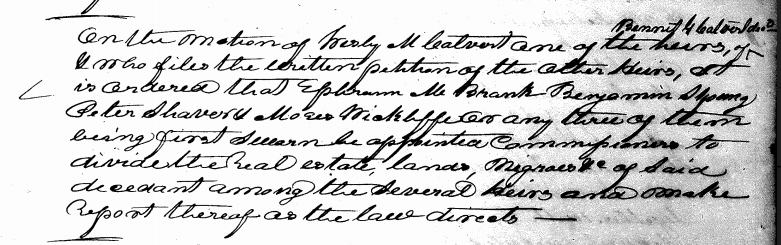 Bennet G Calvert decd
On the motion of Wesly M Calvert one of the heirs, of
& who files the written petition of the other heirs, It
is ordered that Ephraim M Brank Benjamin S Young
Peter Shaver & Moses Wickliffe or any three of them
being first sworn be appointed Commissioners to
divide the real estate, lands, Negroes &c of said
decedant among the several heirs and make
report thereof as the law directs —